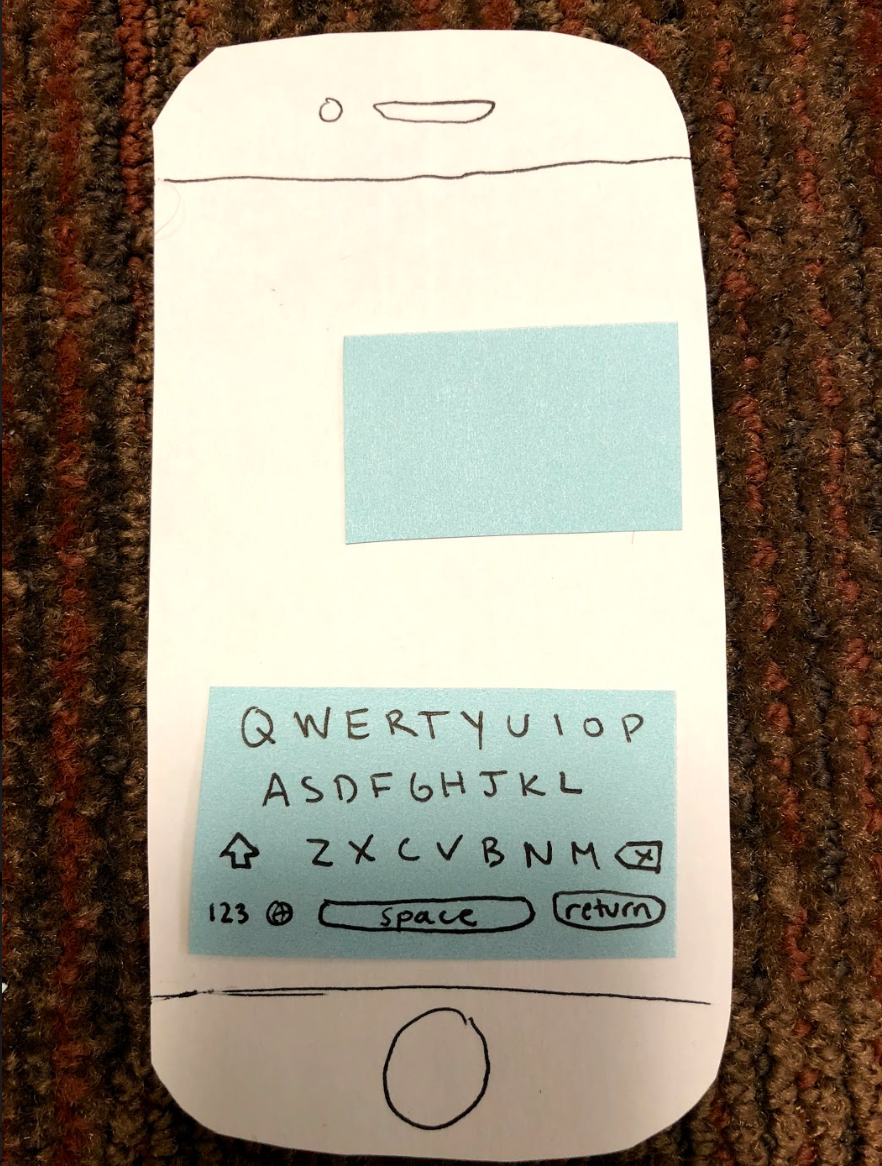 Q W E R T Y U I O P
A S D F G H J K L
Z X C V B N M
123 space return